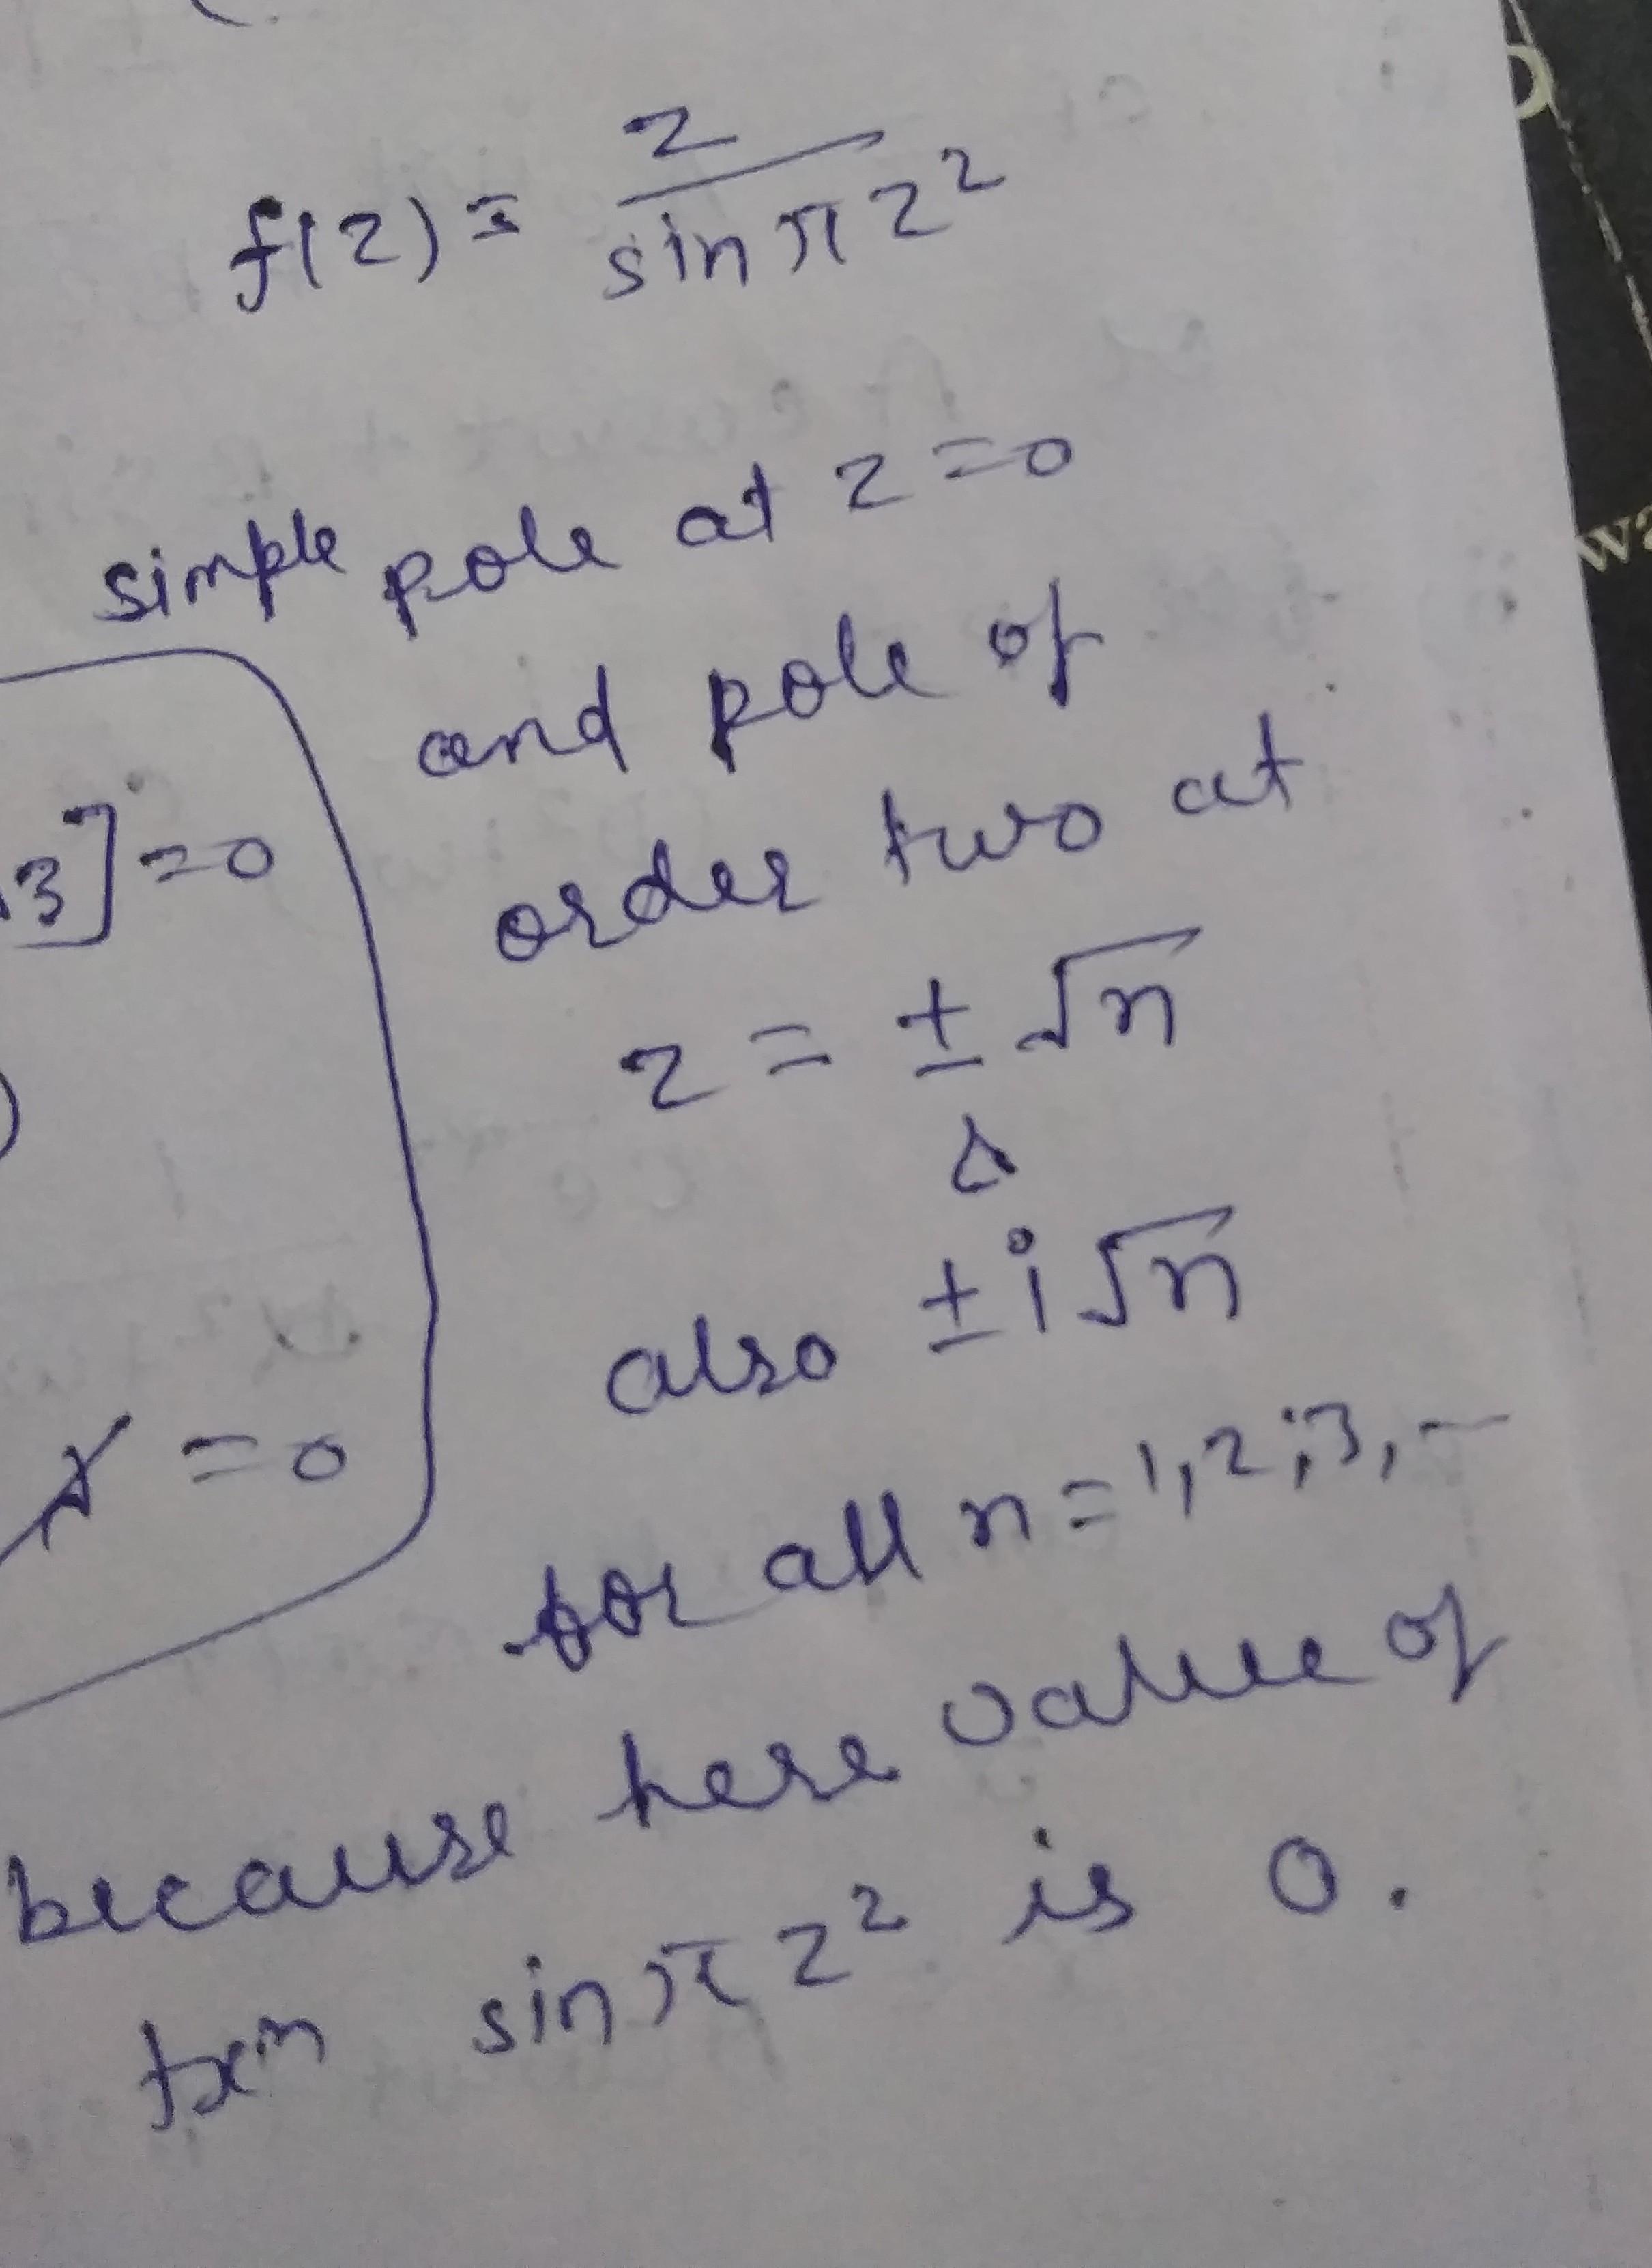 f(z) = z / sin π z²
simple pole at z = 0
and pole of
order two at
z = ± √n
&
also ± i √n
for all n = 1, 2, 3, -
because here value of
fxn sin π z² is 0.
3] = 0
)
= 0
wa